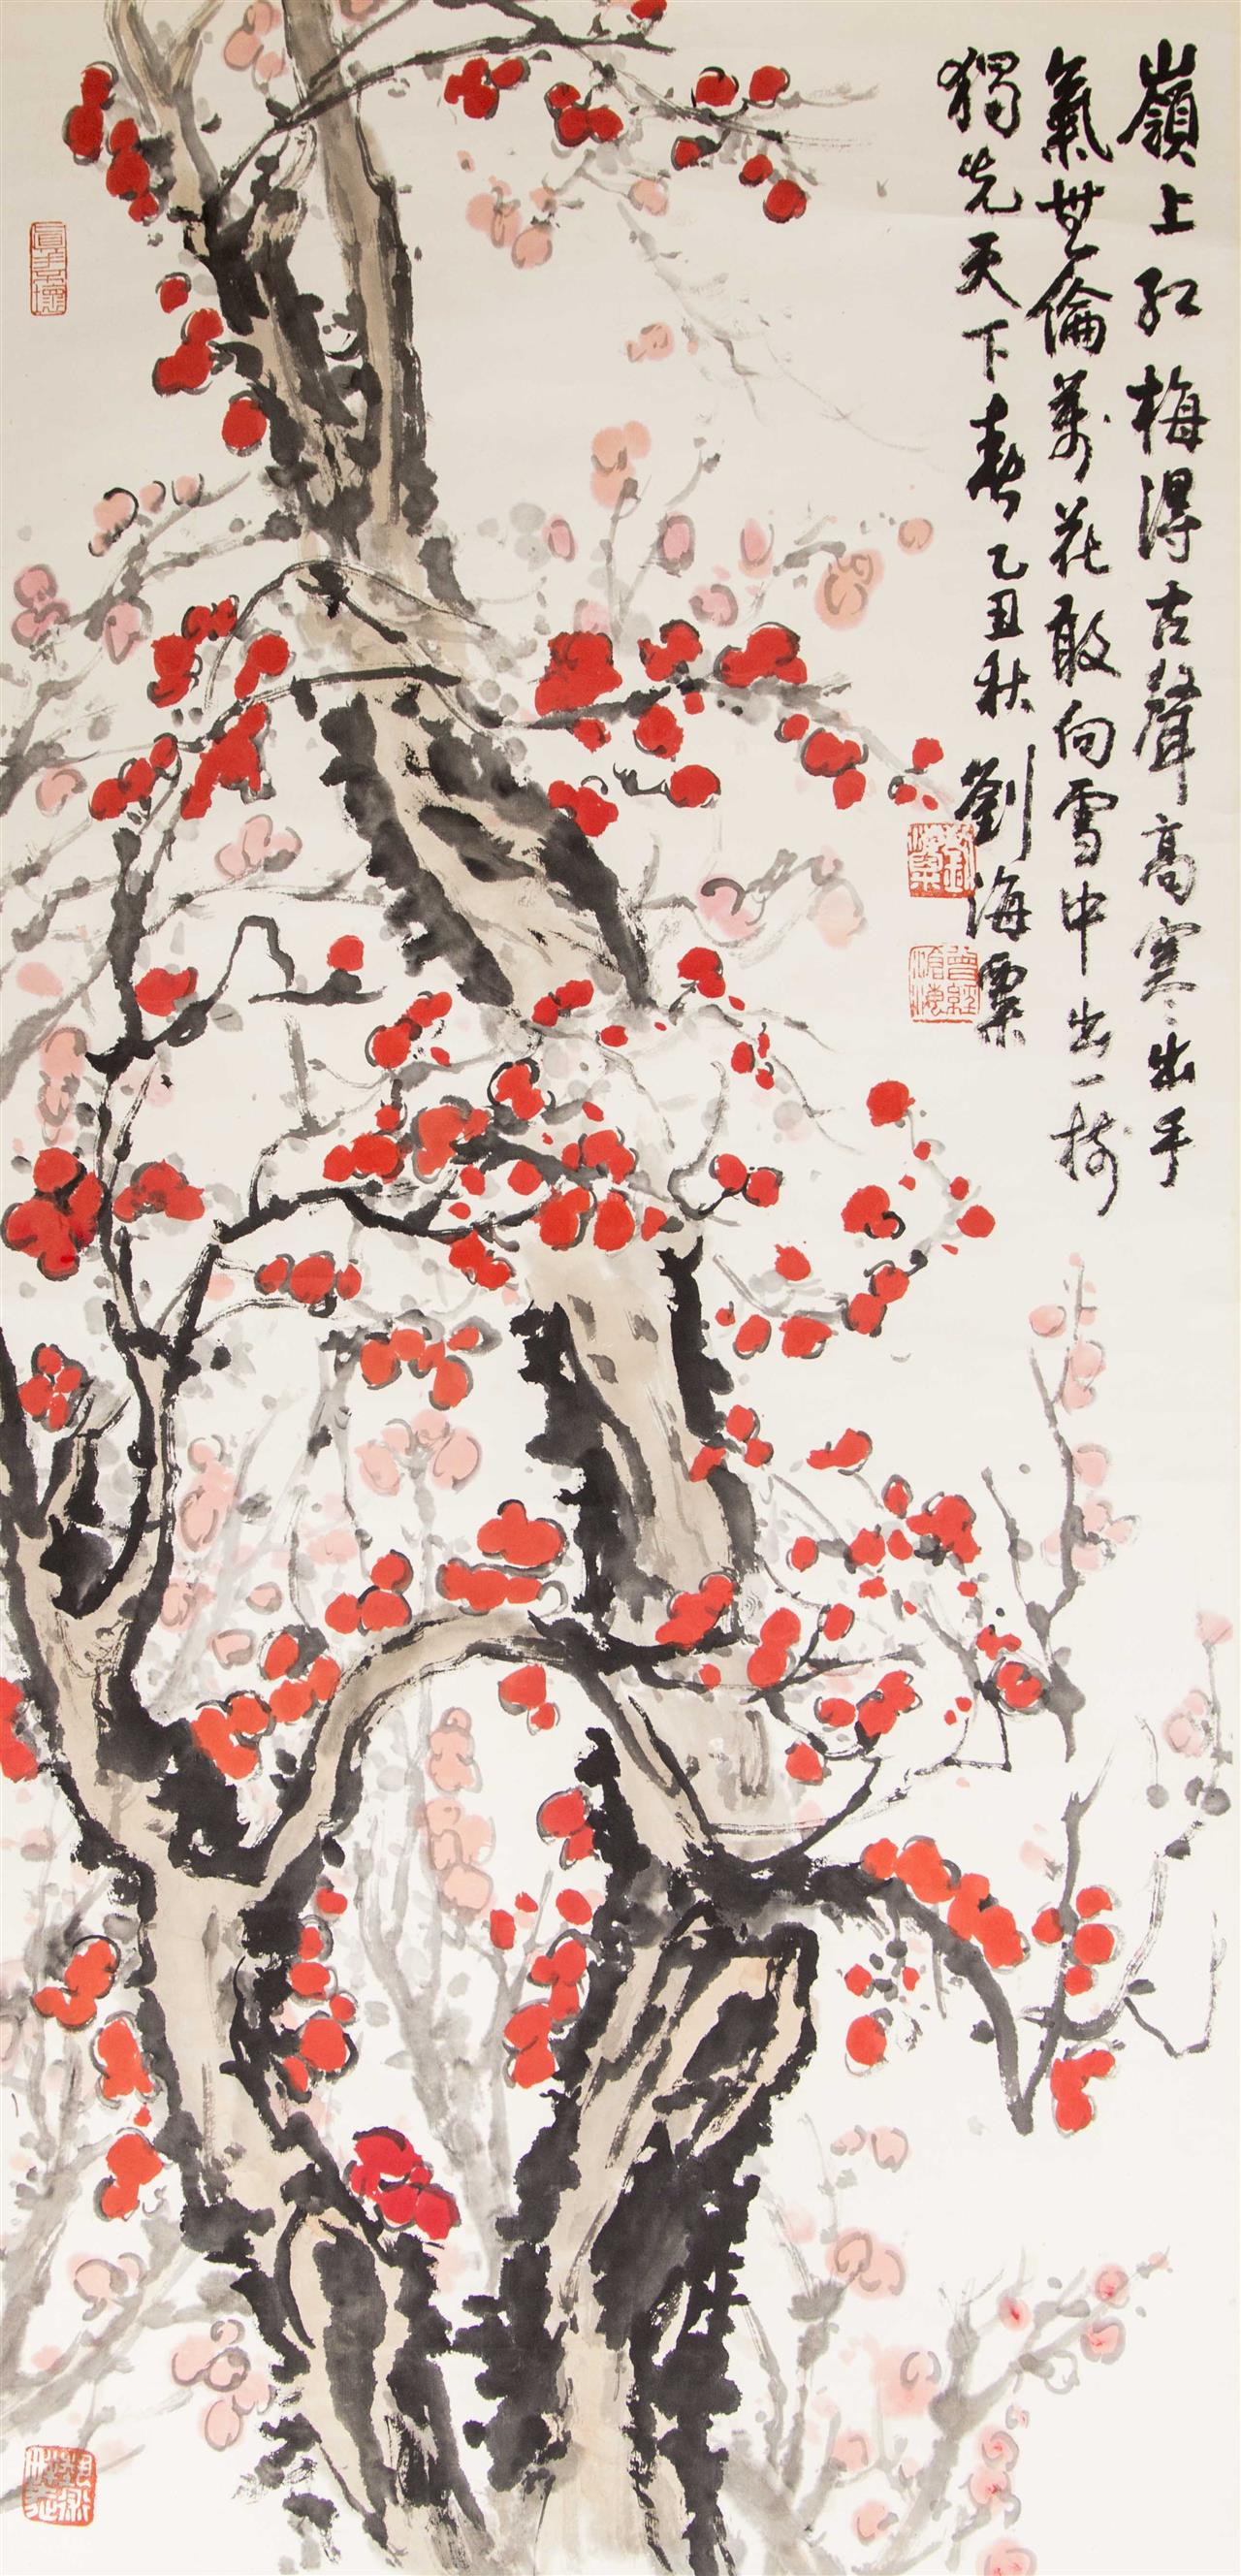 嶺上红梅得古聲高寒出手
氣無倫萬花敢向雪中出一樹
獨先天下春乙丑秋劉海粟
劉海粟
曾經滄海
藝術叛徒